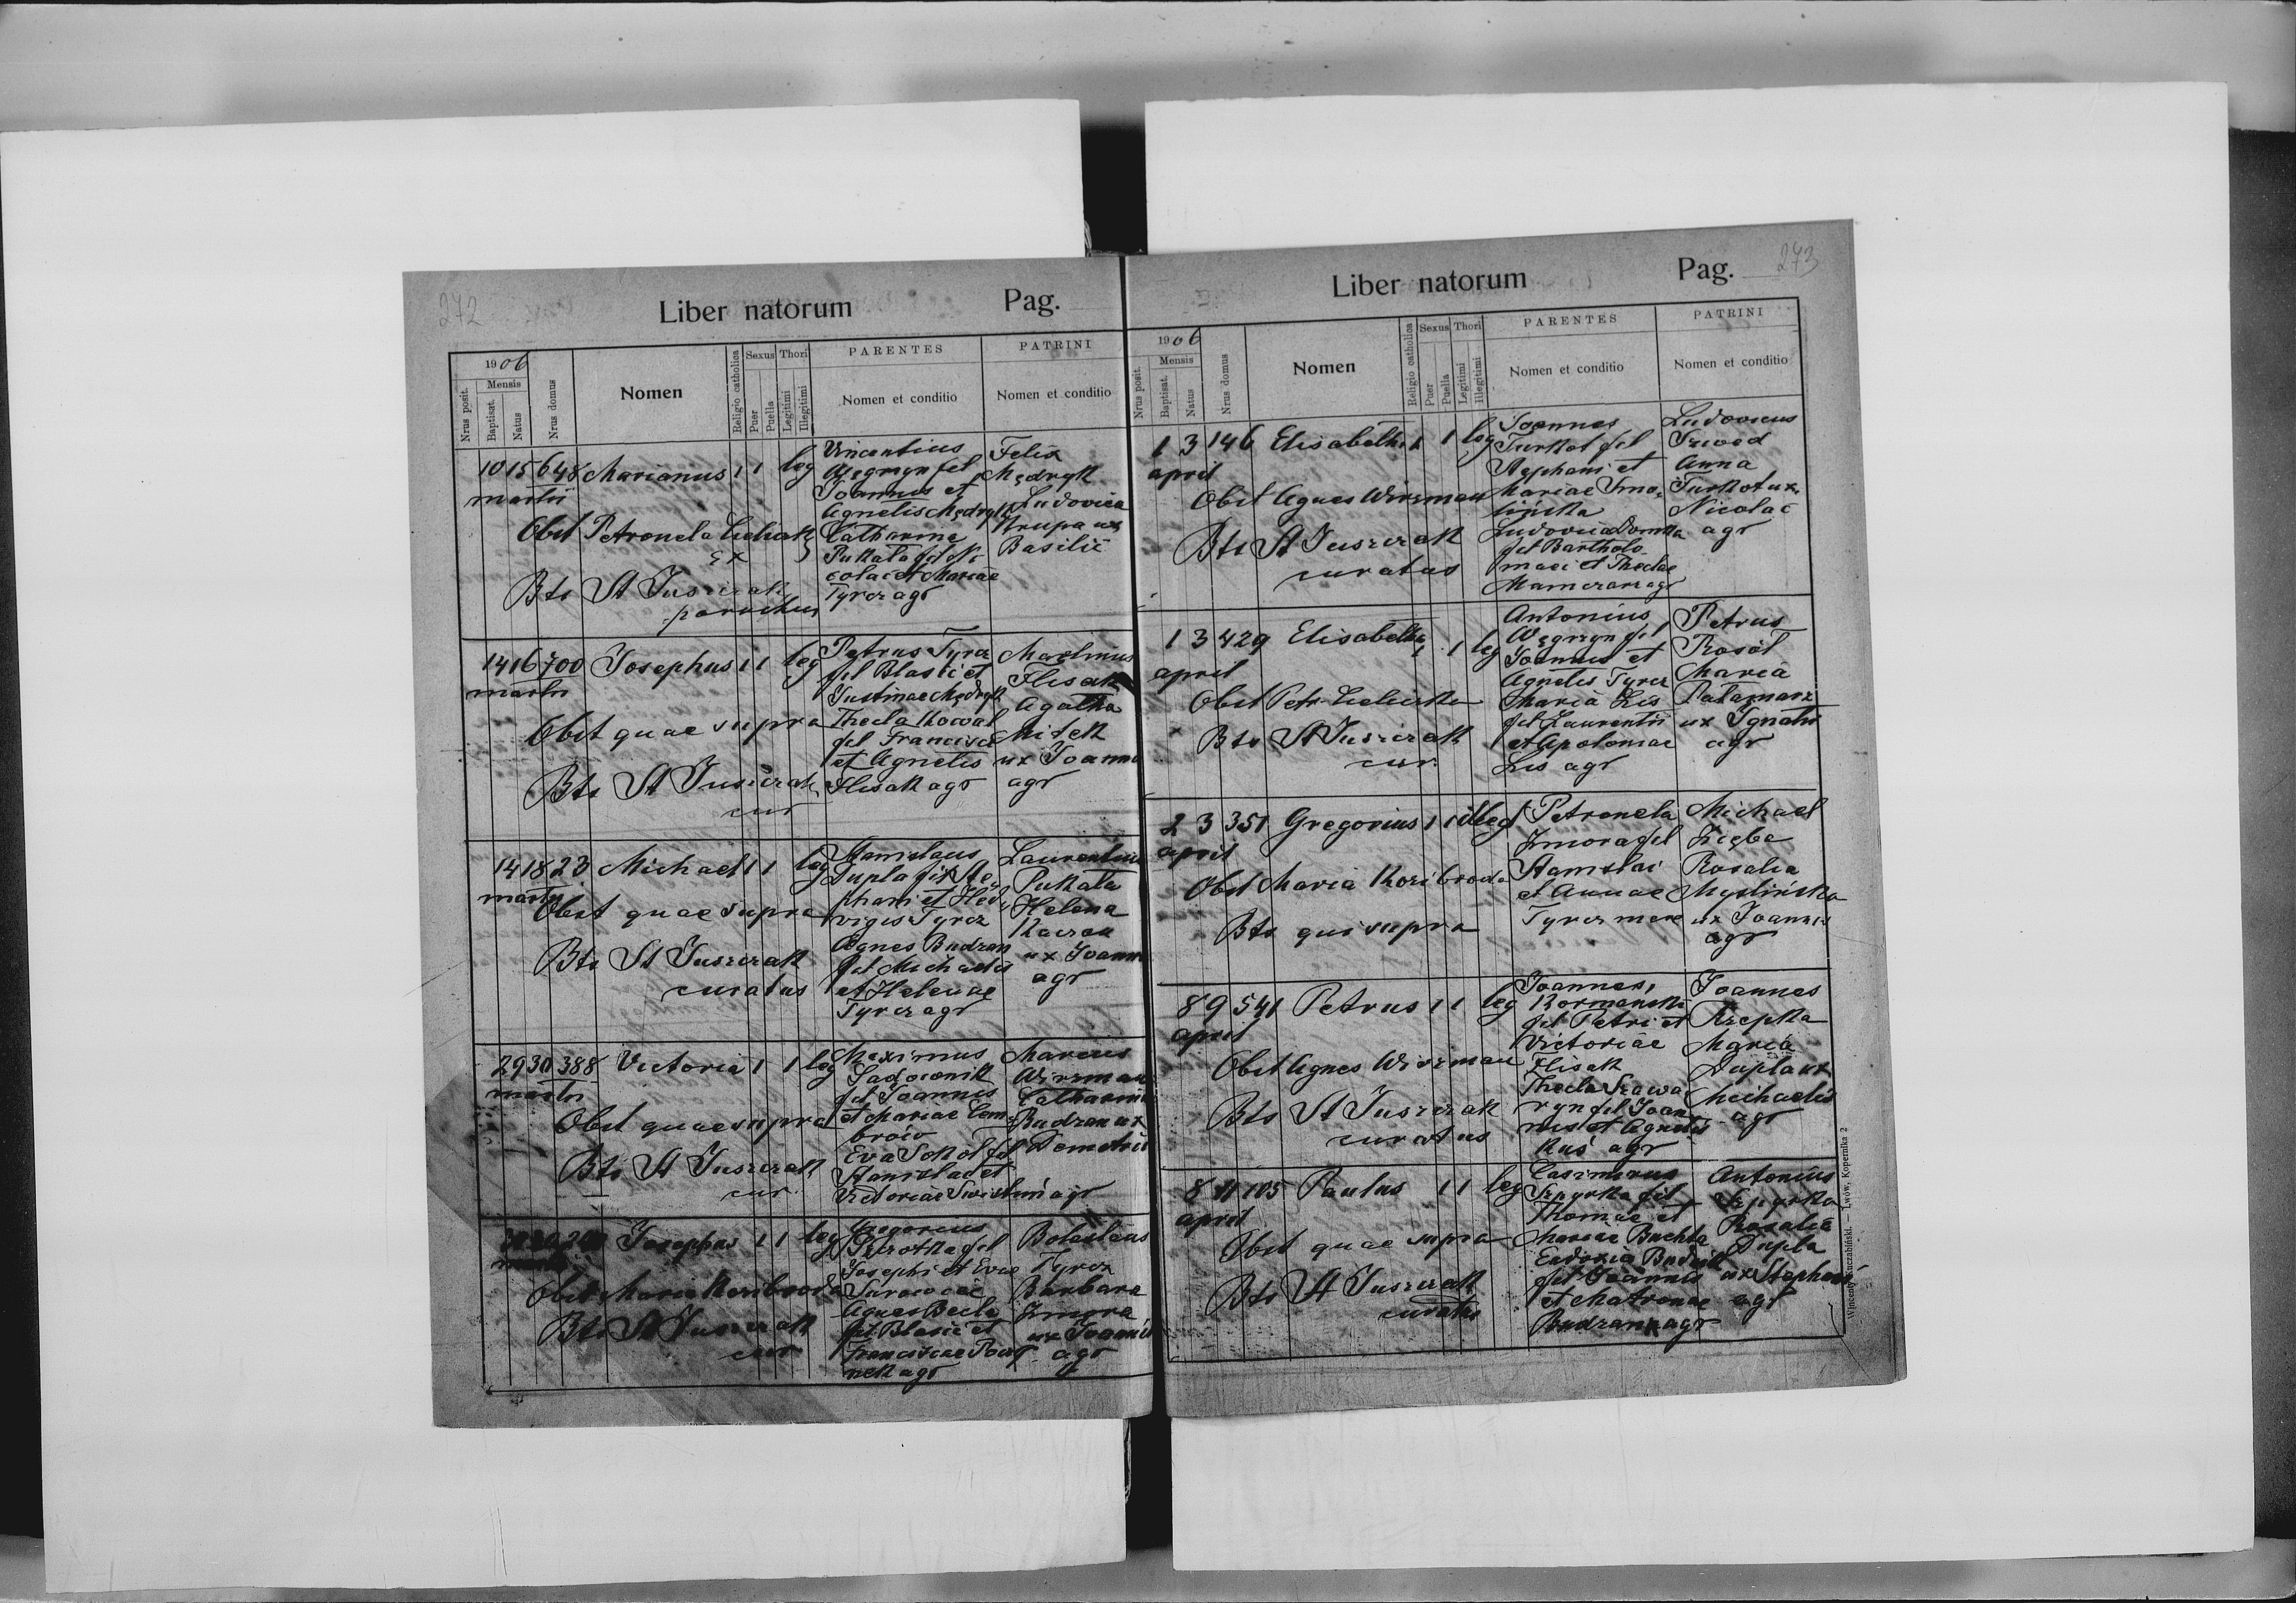 272
Liber natorum
Pag.
1906
Nrus posit.
Mensis
Baptisat.
Natus
Nrus domus
Nomen
Religio catholica
Sexus
Puer
Puella
Thori
Legitimi
Illegitimi
PARENTES
Nomen et conditio
PATRINI
Nomen et conditio
10 15 648 Marianus 1 1 leg
martii
Obst Petronela
Bts St Juszczak
parochus
Vincentius
Węgrzyn fil
Joannis et
Agnetis Mędryk
Catharina
Pukała fil Ni
colai et Mariae
Tyrcz agr
Felix
Mędryk
Ludovica
Krupa ux
Basilii
14 16 700 Josephus 1 1 leg
martii
Obst quae supra
Bts St Juszczak
cur
Petrus Tyrcz
fil Blasii et
Justinae Mędryk
Thecla Kowal
fil Francisci
et Agnetis
Flisak agr
Martinus
Flisak
Agatha
Mitek
ux Joannis
agr
14 18 23 Michael 1 1 leg
martii
Obst quae supra
Bts St Juszczak
curatus
Stanislaus
Dupla fil Ste
phani et Hed
vigis Tyrcz
Agnes Budzan
fil Michaelis
et Helenae
Tyrcz agr
Laurentius
Pukała
Helena
ux Joannis
agr
29 30 388 Victoria 1 1 leg
martii
Obst quae supra
Bts St Juszczak
cur
Maximus
Sadownik
fil Joannis
et Mariae
Eva Sokół fil
Stanislai et
Victoriae agr
Marcus
Wirzman
Catharina
Budzan ux
Demetrii
Josephus 1 1 leg
Obst Maria Koribroda
Bts St Juszczak
cur
Gregorius
fil
Josephi et Evae
Agnes
fil Blasii et
Franciscae
agr
Boleslaus
Tyrcz
Barbara
Zmora
ux Joannis
agr
273
Liber natorum
Pag.
1906
Nrus posit.
Mensis
Baptisat.
Natus
Nrus domus
Nomen
Religio catholica
Sexus
Puer
Puella
Thori
Legitimi
Illegitimi
PARENTES
Nomen et conditio
PATRINI
Nomen et conditio
1 3 146 Elisabeth 1 1 leg
april
Obst Agnes Wirzman
Bts St Juszczak
curatus
Joannes
Turkot fil
Stephani et
Mariae Smo
lińska
Ludovica
fil Bartholo
maei et Theclae
agr
Ludovicus
Anna
Turkot ux
Nicolai
agr
1 3 429 Elisabetha 1 leg
april
Obst Petr
Bts St Juszczak
cur
Antonius
Węgrzyn fil
Joannis et
Agnetis Tyrcz
Maria Lis
fil Laurentii
et Apoloniae
Lis agr
Petrus
Rosół
Maria
ux Ignatii
agr
2 3 351 Gregorius 1 1 illeg
april
Obst Maria Koribroda
Bts qui supra
Petronela
Zmora fil
Stanislai
et Annae
Tyrcz
Michael
Zięba
Rosalia
Myślińska
ux Joannis
agr
8 9 541 Petrus 1 1 leg
april
Obst Agnes Wirzman
Bts St Juszczak
curatus
Joannes
Kormański
fil Petri et
Victoriae
Flisak
Thecla Szawa
ryn fil Joan
nis et Agnetis
Kuś agr
Joannes
Rzepka
Maria
Dupla ux
Michaelis
agr
8 11 105 Paulus 1 1 leg
april
Obst quae supra
Bts St Juszczak
curatus
Casimirus
Szpyrka fil
Thomae et
Mariae Buchta
Eudoxia
fil Joannis
et Matronae
agr
Antonius
Szpyrka
Rosalia
Dupla
ux Stephani
agr
Wincenty Kuczabiński. Lwów, Kopernika 2